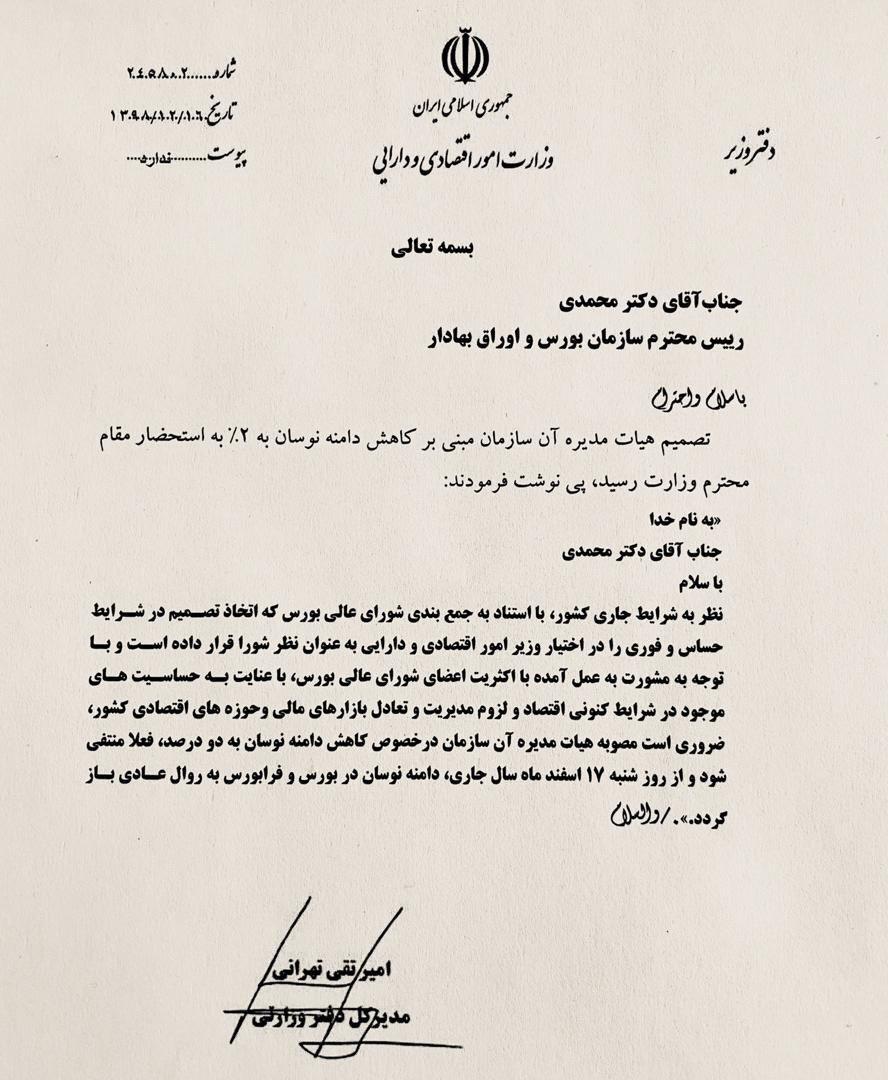 جمهوری اسلامی ایران
وزارت امور اقتصادی و دارایی
دفتر وزیر
شماره ۲٤۵۸۰۲
تاریخ ۱۳۹۸/۱۲/۱۶
پیوست ندارد
بسمه تعالی
جناب‌آقای دکتر محمدی
رییس محترم سازمان بورس و اوراق بهادار
باسلام و احترام
تصمیم هیات مدیره آن سازمان مبنی بر کاهش دامنه نوسان به ۲٪ به استحضار مقام
محترم وزارت رسید، پی نوشت فرمودند:
«به نام خدا
جناب آقای دکتر محمدی
با سلام
نظر به شرایط جاری کشور، با استناد به جمع بندی شورای عالی بورس که اتخاذ تصمیم در شرایط
حساس و فوری را در اختیار وزیر امور اقتصادی و دارایی به عنوان نظر شورا قرار داده است و با
توجه به مشورت به عمل آمده با اکثریت اعضای شورای عالی بورس، با عنایت به حساسیت های
موجود در شرایط کنونی اقتصاد و لزوم مدیریت و تعادل بازارهای مالی وحوزه های اقتصادی کشور،
ضروری است مصوبه هیات مدیره آن سازمان درخصوص کاهش دامنه نوسان به دو درصد، فعلا منتفی
شود و از روز شنبه ۱۷ اسفند ماه سال جاری، دامنه نوسان در بورس و فرابورس به روال عادی باز
گردد.»./والسلام
امیر تقی تهرانی
مدیرکل دفتر وزارتی